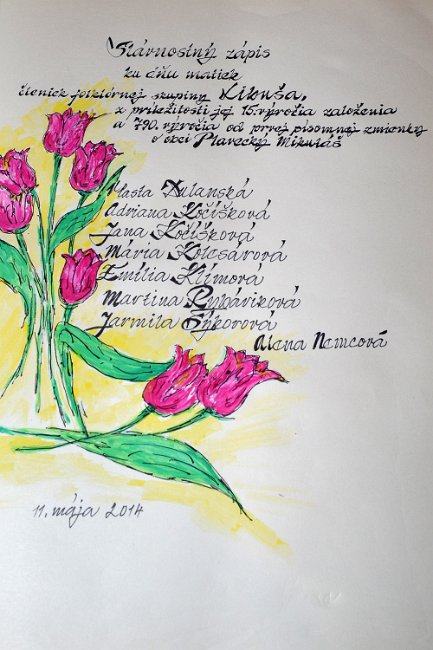 Slávnostný zápis
ku dňu matiek
členiek folklórnej skupiny Likuša,
z príležitosti jej 15. výročia založenia
a 790. výročia od prvej písomnej zmienky
o obci Plavecký Mikuláš
Vlasta Dulanská
Adriana Kočíšková
Jana Kočíšková
Mária Kolesárová
Emília Klímová
Martina Rybáriková
Jarmila Sýkorová
Alena Nemcová
11. mája 2014